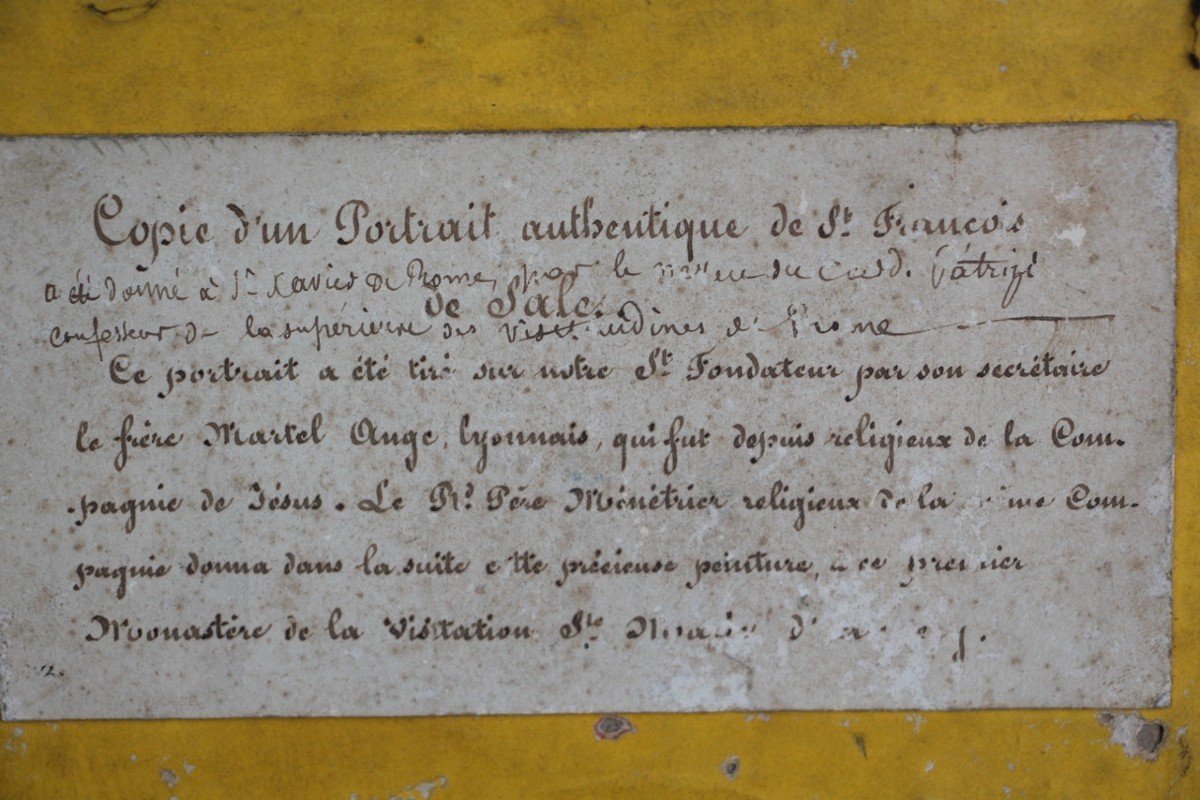 Copie d'un Portrait authentique de St. François
a été donné à St Xavier de Rome, par le neveu du Card. Patrizi
de Sales.
confesseur de la supérieure des visitandines de Rome
Ce portrait a été tiré sur notre St. Fondateur par son secrétaire
le frère Martel Ange, lyonnais, qui fut depuis religieux de la Com-
pagnie de Jésus. Le Rd. Père Ménétrier religieux de la même Com-
pagnie donna dans la suite cette précieuse peinture, à ce premier
Monastère de la Visitation Ste Marie
2.